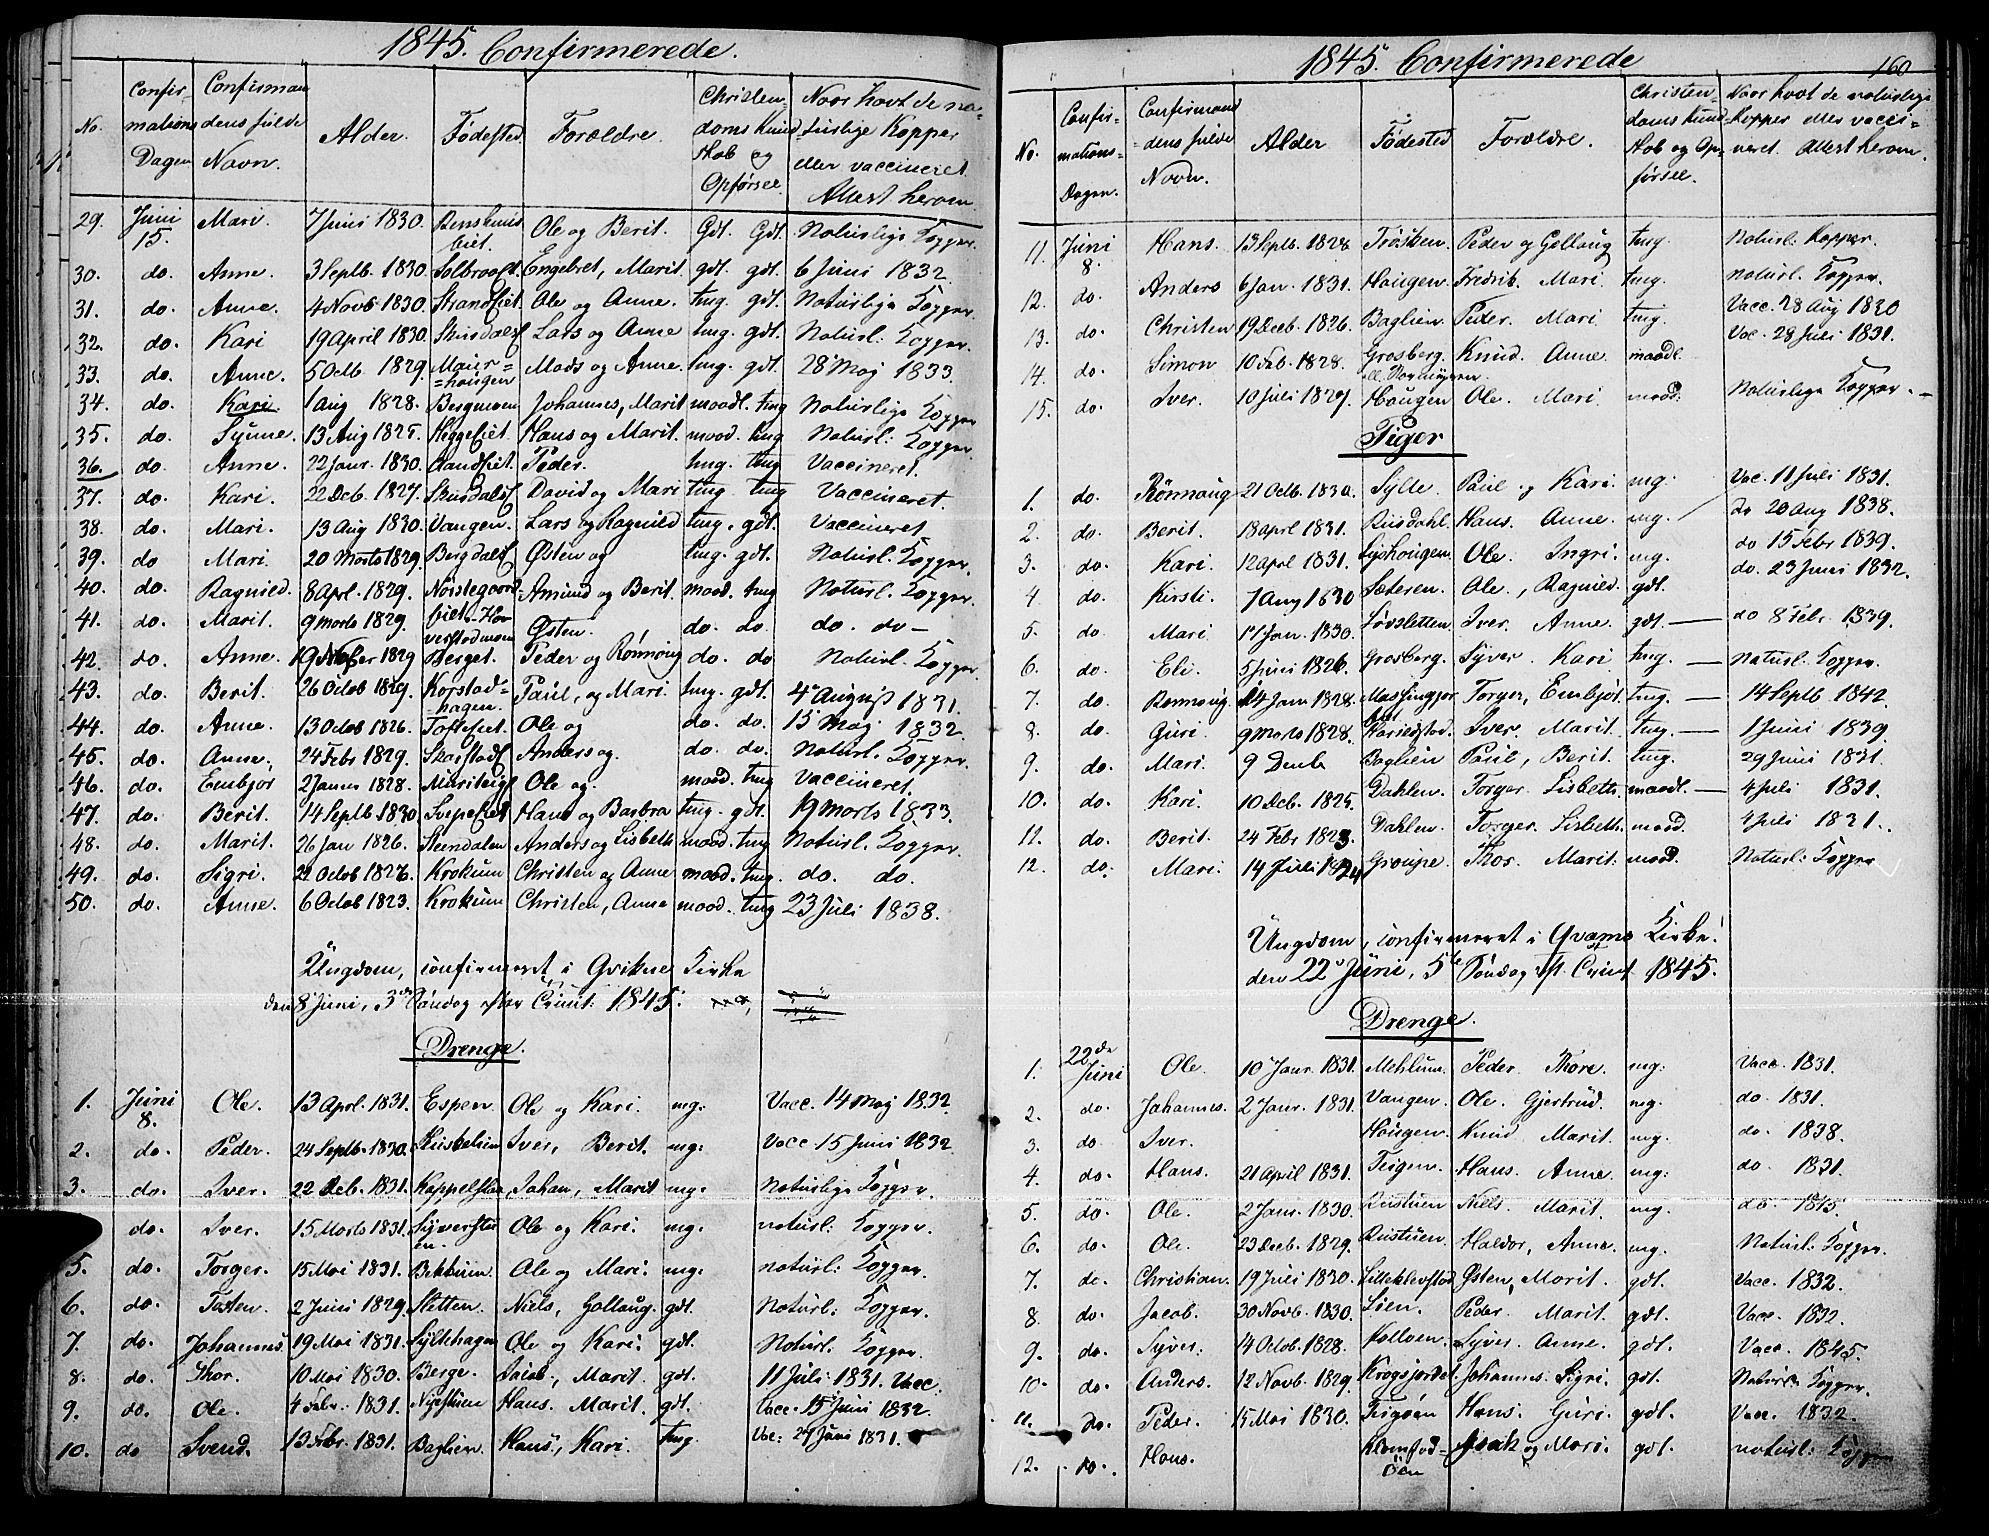 1845. Confirmerede.
No. Confirmations Dagen Confirmandens fulde Navn. Alder. Fødested Forældre. Christendoms Kundskab og Opførsel. Naar havt de naturlige Kopper eller vaccineret. Attest herom.
29. Juni 15. Mari. 7 Juni 1830. Ole og Berit. Gdt. Gdt. Naturlige Kopper.
30. do. Anne. 3 Septb. 1830. Engebret, Marit. gdt. gdt. 6 Juni 1832
31. do. Anne. 4 Novb. 1830. Ole og Anne. tmg. gdt. Naturlige Kopper.
32. do. Kari 19 April 1830. Lars og Anne tmg. gdt. Naturl: Kopper.
33. do. Anne. 5 Octb. 1829. Mads og Anne. tmg. gdt. 28 Maj 1833.
34. do. Kari. 1 Aug 1828. Bergmoen Johannes, Marit maadl. tmg Naturlige Kopper
35. do. Synne. 13 Aug 1825. Heggeeiet. Hans og Marit. maad. tmg Naturl: Kopper.
36. do. Anne. 22 Janr. 1830. Peder. tmg. tmg Vaccineret.
37. do. Kari. 22 Dcb. 1827. David og Mari tmg. tmg Vaccineret.
38. do. Mari. 13 Aug 1830. Vangen. Lars og Ragnild tmg. gdt. Vaccineret
39. do Mari. 20 Marts 1829. Østen og tmg. gdt. Naturl. Kopper.
40. do. Ragnild. 8 Aprl. 1829. Amund og Berit. maad. tmg Naturl. Kopper.
41. do. Marit. 9 Marts 1829. Østen. do. do. do. do
42. do. Anne. 1829 Berget. Peder og Rønnoug do. do Naturl. Kopper
43. do. Berit. 26 Octob 1829. Korstadhagen. Paul, og Mari tmg. gdt. 4 August 1831.
44. do. Anne. 13 Octob 1826. Ole og do. do. 15 Maj 1832.
45. do. Anne. 24 Febr 1829. Anders og. do. do. Naturl. Kopper.
46. do. Embjør 2 Janr 1828. Ole og. maad. tmg Vaccineret.
47. do. Berit. 14 Septb 1830 Hans og Barbra tmg. gdt. 19 Marts 1833.
48. do. Marit. 26 Jan 1826. Steendalen Anders og Lisbeth maad. tmg Naturl. Kopper.
49. do. Sigri. 22 Octob 1826. Krokum Christen og Anne maad. tmg. do. do.
50. do. Anne. 6 Octob 1823. Krokum Christen, Anne maad. tmg 23 Juli 1838.
Ungdom, confirmeret i Qvikne Kirke
den 8 Juni, 3die Søndag efter Trinit: 1845.
Drenge.
1. Juni 8. Ole. 13 Aprl. 1831. Espen Ole og Kari. mg: Vacc. 14 Maj 1832
2. do. Peder. 24 Septb. 1830. Iver, Berit. mg: Vacc 15 Juni 1832
3. do. Iver. 22 Dcb. 1831. Johan, Marit mg: Naturlige Kopper
do. Iver. 15 Marts 1831. Ole og Kari. mg: naturl: Kopper.
5. do. Torger. 15 Mai 1831. Ole og Mari. mg: naturl: Kopper.
6. do. Tosten. 2 Juni 1829. Sletten. Niels, Gollaug. gdt. Naturl: Kopper.
7. do. Johannes 19 Mai 1831. Syltehagen Ole og Kari. gdt. Naturl. Kopper.
8. do. Thor. 10 Mai 1830. Berge. Jacob, Marit. gdt. 11 Juli 1831. Vacc.
9. do. Ole. 4 Febr. 1831. Hans. Marit. gdt. Vacc. 15 Juni 1832.
10. do Svend. 13 Febr. 1831. Baglien. Hans, Kari. tmg. Vac: 29 Juni 1831.
1845. Confirmerede
160
No. Confirmations Dagen. Confirmandens fulde Navn. Alder Fødested Forældre. Christendoms Kundskab og Opførsel. Naar havt de naturlige Kopper eller vaccineret. Attest herom.
11. Juni 8. Hans. 13 Septb. 1828 Peder og Gollaug tmg. Naturl: Kopper.
12. do. Anders 6 Jan. 1831. Haugen. Fredrik. Mari tmg. naturl. Kopper.
13. do Christen 19 Decb. 1826. Baglien. Peder. Mari tmg. Vacc. 28 Aug 1830
14. do. Simon 10 Feb. 1828. Grosberg. Knud. Anne. maadl. Vac. 28 Juli 1831.
15. do. Iver. 10 Juli 1827. Haugen Ole. Mari maad. Naturlige Kopper.
Piger
1. do. Rønnaug 21 Octb. 1830. Sylte. Paul og Kari. mg. Vac. 11 Juli 1831.
2. do. Berit. 18 Aprl 1831. Hans. Anne. mg. do 20 Aug 1838.
3. do. Kari. 12 Aprl 1831. Ole. Ingri. mg. do 15 Febr 1839.
4 do. Kirsti. 7 Aug 1830 Sæteren. Ole, Ragnild. gdt. do. 23 Juni 1832.
5. do. Mari 17 Jan. 1830. Iver. Anne. gdt. do 8 Febr. 1839.
6. do. Eli. 5 Juni 1826. Grosberg. Syver. Kari tmg. Naturl. Kopper.
7. do. Ronnoug. 24 Janr 1828. Torger, Embjør. tmg. 14 Septb 1842.
8. do. Guri. 9 Marts 1828. Iver. Marit. tmg. 1 Juni 1839.
9. do. Mari. 9 Baglien Paul, Berit. tmg. 29 Juni 1831.
10. do. Kari. 10 Dcb. 1825. Dahlen. Torger. Lisbeth. maadl. 4 Juli 1831.
11. do. Berit. 24 Febr 1823. Dahlen. Torger. Lisbeth. maad. 4 Juli 1831.
12. do. Mari. 14 Juli 1824 Thor. Marit. maad. Naturl: Kopper
Ungdom, confirmeret i Qvams Kirke.
den 22 Juni, 5te Søndag eft. Trinit 1845.
Drenge.
1. 22de Juni Ole. 10 Janr. 1831. Mehlum. Peder Thore. mg: Vacc. 1831.
2. do. Johannes. 2 Janr. 1831. Vangen. Ole. Gjertrud. mg. do 1831.
3. do. Iver. Haugen. Knud Marit. mg. do. 1838.
4. do. Hans. 21 April 1831. Hans. Anne. mg: do 1831.
5. do. Ole. 2 Janr. 1830. Niels. Marit. mg. do.
6. do. Ole. 23 Decb. 1829. Haldor, Anne. mg. Naturl: Kopper.
7. do. Christian. 19 Juli 1830. Østen, Marit. gdt. Vacc. 1832.
8. do. Jacob. 30 Novb. 1830. Lien. Peder, Marit. gdt. Vacc. 1832.
9. do. Syver. 14 Octob. 1828. Syver. Anne. gdt. Vacc. 1845.
10. do. Anders. 12 Novb. 1829. Johannes. Sigri. gdt. Naturl. Kopper.
11. do. Peder. 15 Mai 1830. Hans. Guri. gdt. Vacc. 1832.
12. do. Hans. Isak og Mari. gdt. naturl: Kopper